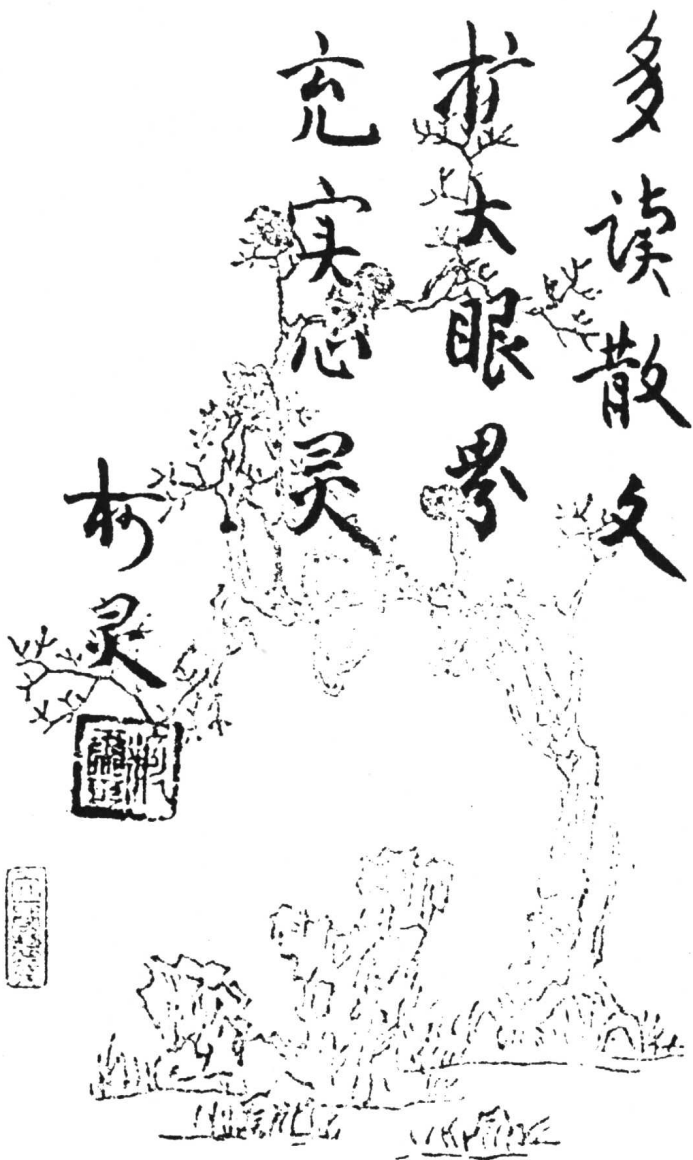 多读散文
扩大眼界
充实心灵
柯灵
柯灵